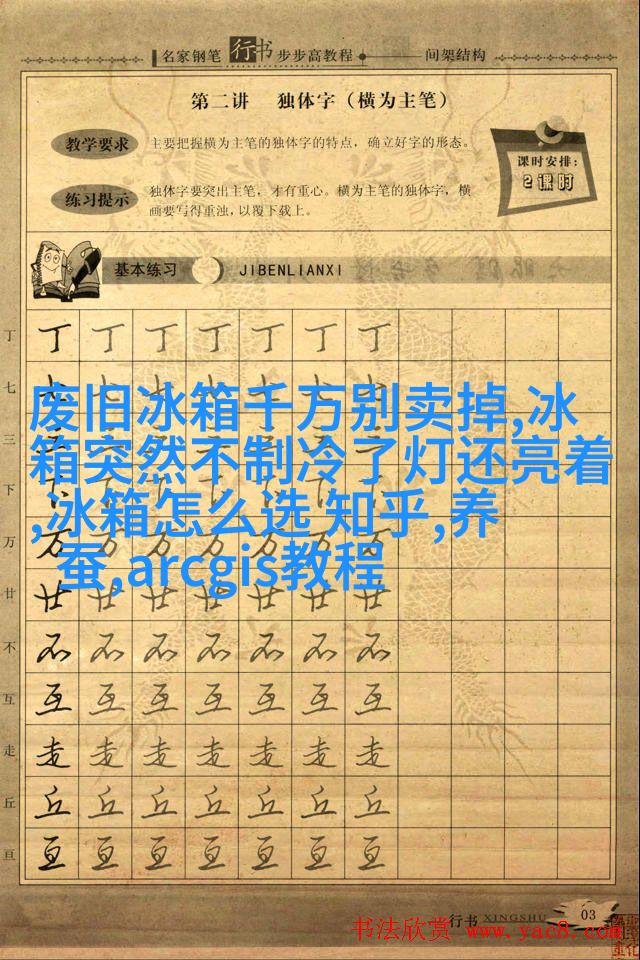 名家钢笔 行书 步步高教程 间架结构
第二讲 独体字（横为主笔）
教学要求
主要把握横为主笔的独体字的特点，确立好字的形态。
课时安排：
2课时
练习提示
独体字要突出主笔，才有重心。横为主笔的独体字，横
画要写得重浊，以覆下载上。
基本练习 JIBENLIANXI
丁 丁 丁 丁 丁 丁 丁 丁
七 七 七 七 七 七 七 七
废旧冰箱千万别卖掉,冰
箱突然不制冷了灯还亮着
,冰箱怎么选 知乎,养
蚕,arcgis教程
三
下
万 万 万 万 万 万 万 万
廿 廿 廿 廿 廿 廿 廿 廿
不 不 不 不 不 不 不 不
互 互 互 互 互 互 互 互
走 走 走 走 走 走 走 走
丘 丘 丘 丘 丘 丘 丘 丘
亘 亘 亘 亘 亘 亘 亘 亘
行书 XINGSHU 03
书法欣赏 www.yac8.com